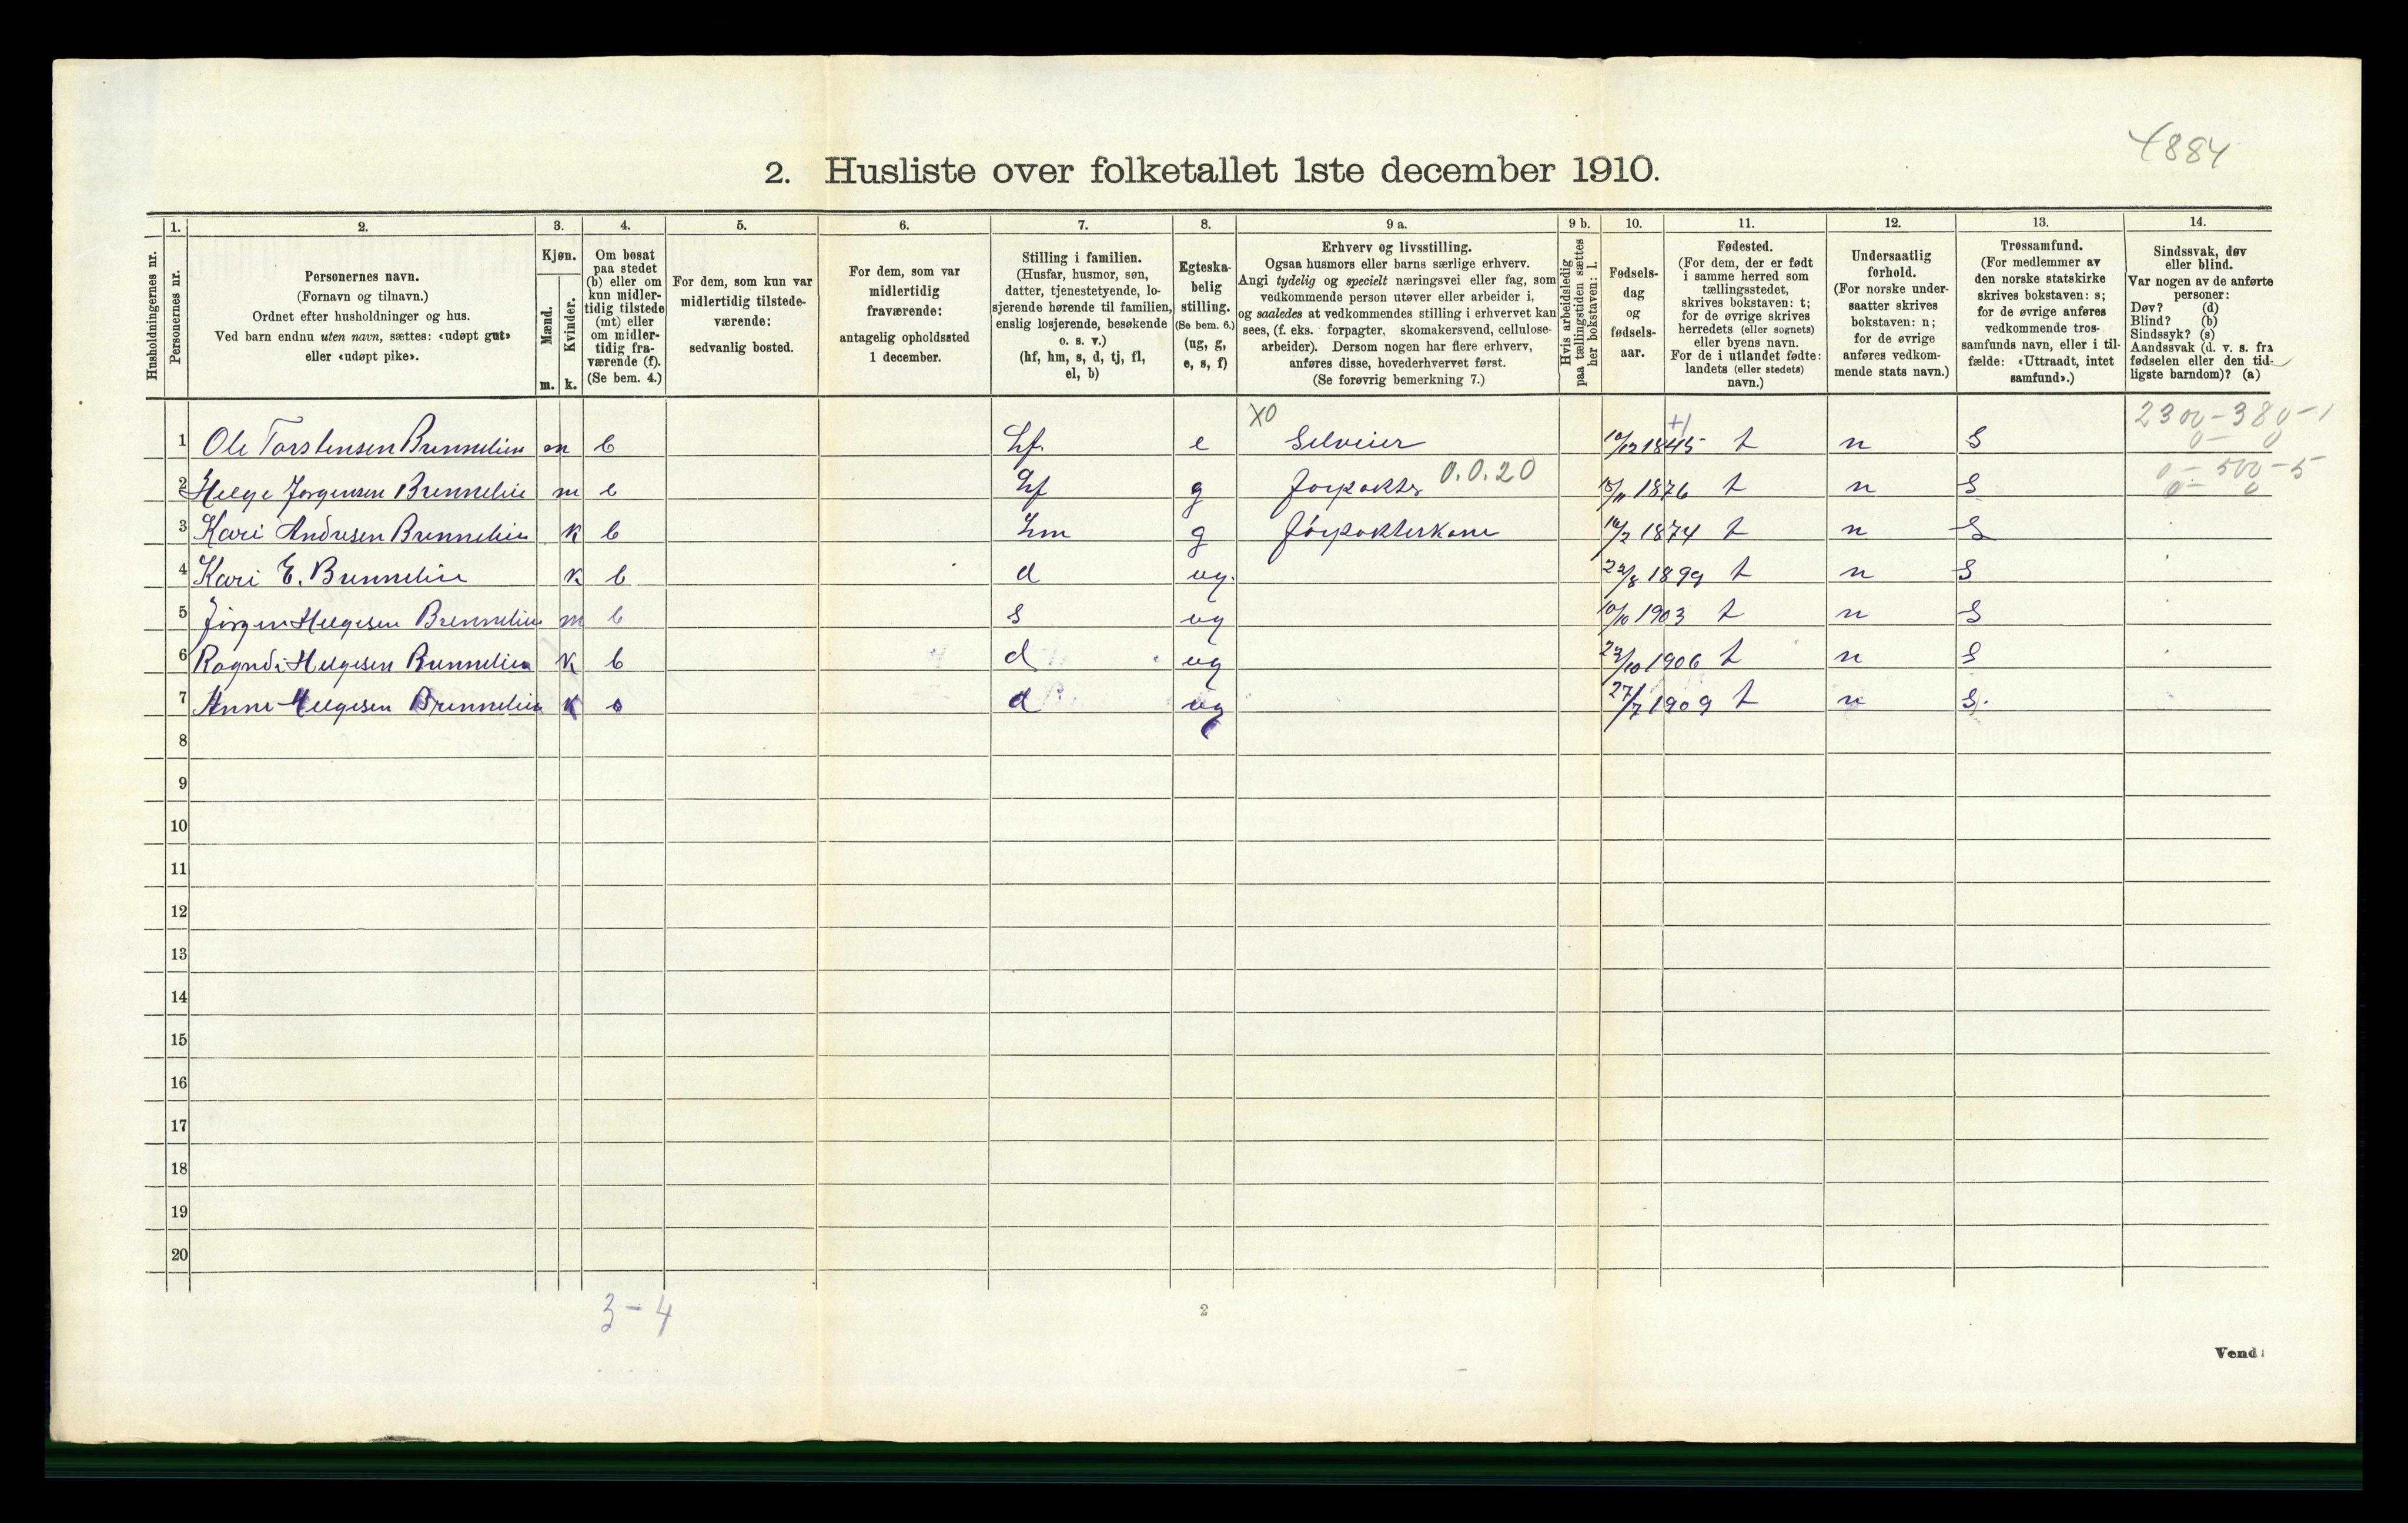 4884
2. Husliste over folketallet 1ste december 1910.
Husholdningernes nr.
1. Personernes nr.
2. Personernes navn.
(Fornavn og tilnavn.)
Ordnet efter husholdninger og hus.
Ved barn endnu uten navn, sættes: «udøpt gut»
eller «udøpt pike».
3. Kjøn.
Mænd. m.
Kvinder. k.
4. Om bosat
paa stedet
(b) eller om
kun midler-
tidig tilstede
(mt) eller
om midler-
tidig fra-
værende (f).
(Se bem. 4.)
5. For dem, som kun var
midlertidig tilstede-
værende:
sedvanlig bosted.
6. For dem, som var
midlertidig
fraværende:
antagelig opholdssted
1 december.
7. Stilling i familien.
(Husfar, husmor, søn,
datter, tjenestetyende, lo-
sjerende hørende til familien,
enslig losjerende, besøkende
o. s. v.)
(hf, hm, s, d, tj, fl,
el, b)
8. Egteska-
belig
stilling.
(Se bem. 6.)
(ug, g,
e, s, f)
9 a. Erhverv og livsstilling.
Ogsaa husmors eller barns særlige erhverv.
Angi tydelig og specielt næringsvei eller fag, som
vedkommende person utøver eller arbeider i,
og saaledes at vedkommendes stilling i erhvervet kan
sees, (f. eks. forpagter, skomakersvend, cellulose-
arbeider). Dersom nogen har flere erhverv,
anføres disse, hovederhvervet først.
(Se forøvrig bemerkning 7.)
9 b. Hvis arbeidsledig
paa tællingstiden sættes
her bokstaven: l.
10. Fødsels-
dag
og
fødsels-
aar.
11. Fødested.
(For dem, der er født
i samme herred som
tællingsstedet,
skrives bokstaven: t;
for de øvrige skrives
herredets (eller sognets)
eller byens navn.
For de i utlandet fødte:
landets (eller stedets)
navn.)
12. Undersaatlig
forhold.
(For norske under-
saatter skrives
bokstaven: n;
for de øvrige
anføres vedkom-
mende stats navn.)
13. Trossamfund.
(For medlemmer av
den norske statskirke
skrives bokstaven: s;
for de øvrige anføres
vedkommende tros-
samfunds navn, eller i til-
fælde: «Uttraadt, intet
samfund».)
14. Sindssvak, døv
eller blind.
Var nogen av de anførte
personer:
Døv? (d)
Blind? (b)
Sindssyk? (s)
Aandssvak (d. v. s. fra
fødselen eller den tid-
ligste barndom)? (a)
X0 +1 2300-380-1
1 Ole Torstensen Brennelien m b hf e Selveier 10/12 1845 t n S 0- 0
0.0.20 0-500-5
2 Helge Jørgensen Brennelien m b hf g forpakter 15/11 1876 t n S 0- 0
3 Kari Andresen Brennelien k b hm g førpakterkone 16/2 1874 t n S
4 Kari E. Brennelien k b d ug. 22/8 1899 t n S
5 Jørgen Helgesen Brennelien m b s ug 10/10 1903 t n S
6 Ragndi Helgesen Brennelien k b d ug 23/10 1906 t n S
7 Anne Helgesen Brennelien k b d ug 27/7 1909 t n S.
8
9
10
11
12
13
14
15
16
17
18
19
20
3-4
2
Vend!